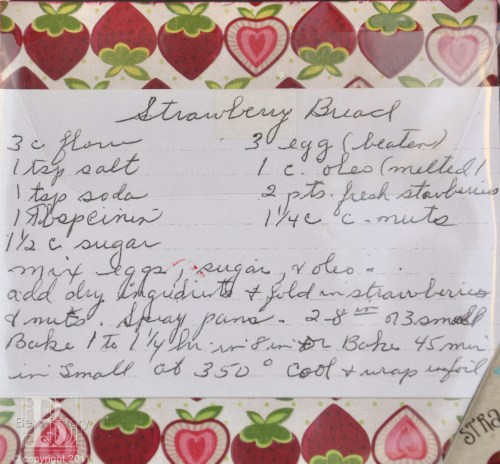 Strawberry Bread
3 c flour
3 egg (beaten)
1 tsp salt
1 c. oleo (melted)
1 tsp soda
2 pts. fresh starberries
1 Tbsp
1 1/4 c c. nuts
1 1/2 c sugar
mix eggs, sugar, & oleo.
add dry ingredients & fold in strawberries
& nuts. Spray pans. 2-8 in or 3 small
Bake 1 to 1 1/4 hr. in 8 in or Bake 45 min
in small at 350° Cool & wrap in foil
STRA
copyright 201